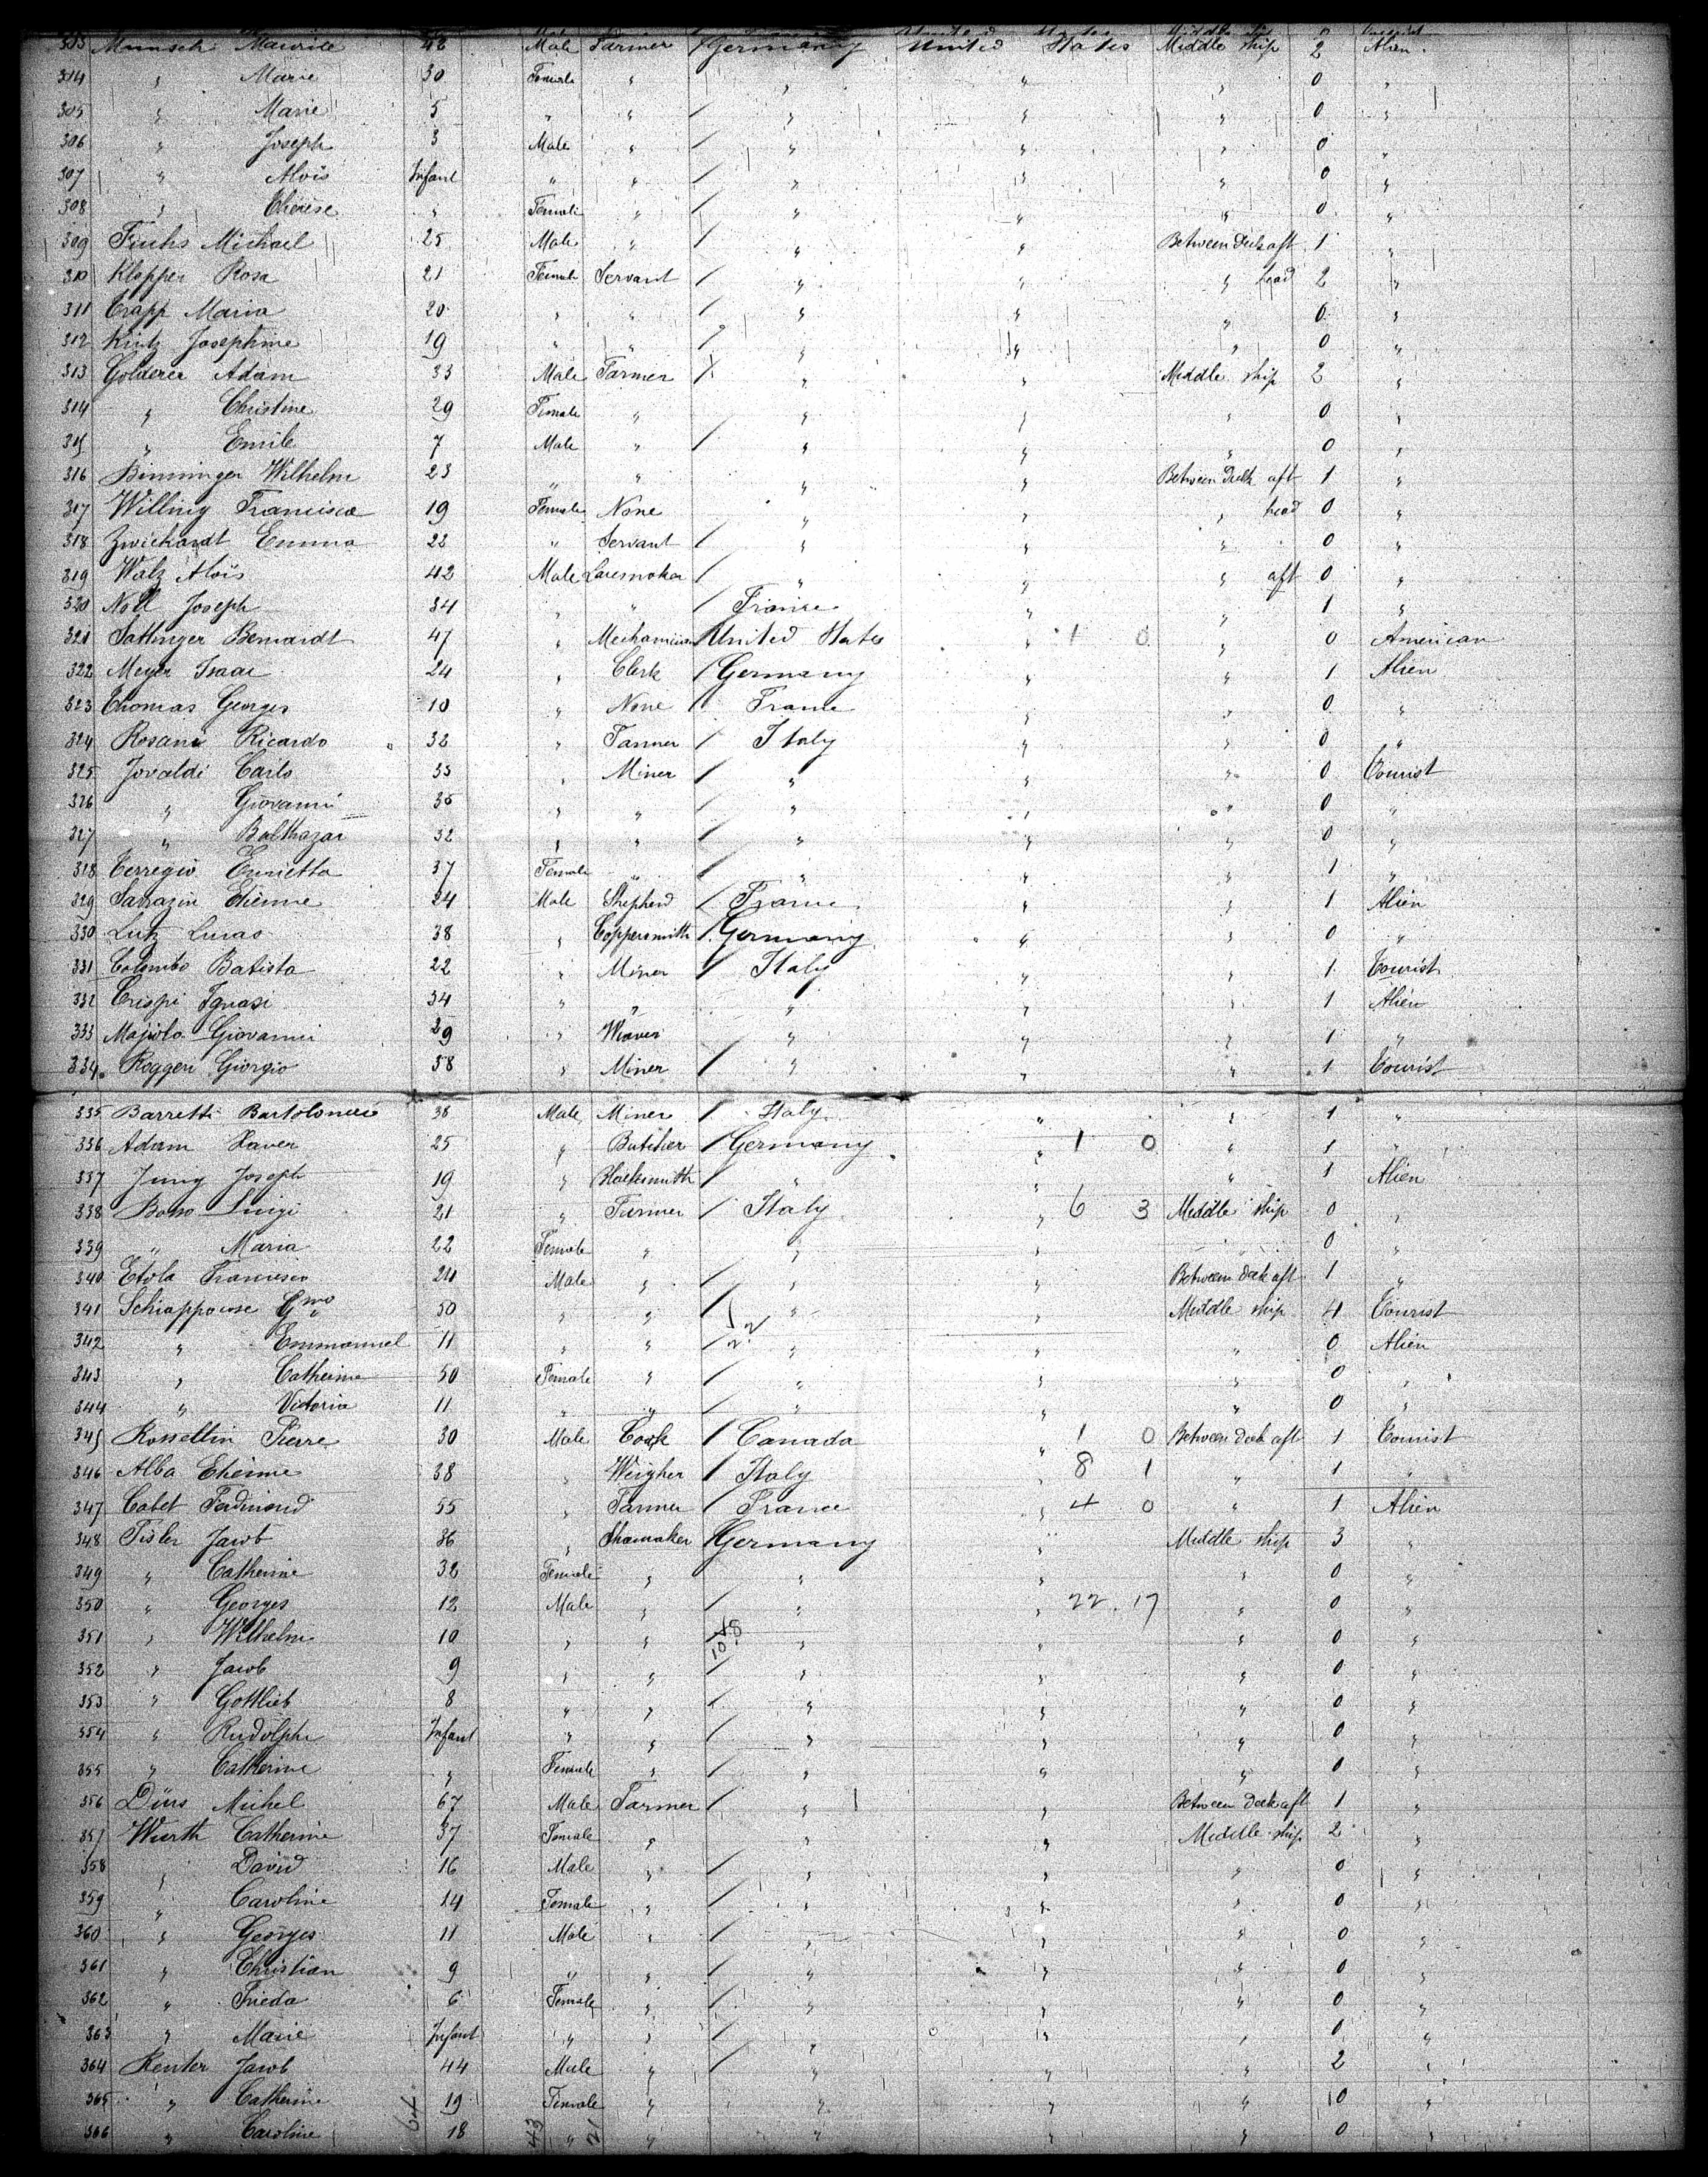 303 Munsch Maurice 42 Male Farmer / Germany United States Middle ship 2 Alien
304 " Marie 30 Female " " " " 0 "
305 " Marie 5 " " / " " " 0 "
306 " Joseph 3 Male " / " " " 0 "
307 " Alois Infant " " / " " " 0 "
308 " Therese " Female " / " " " 0 "
309 Fuchs Michael 25 Male " / " " Between deck aft 1 "
310 Klopper Rosa 21 Female Servant / " " " head 2 "
311 Trapp Maria 20 " " / " " " 0 "
312 Kintz Josephine 19 " " / " " " 0 "
313 Golderer Adam 33 Male Farmer X " " Middle ship 2 "
314 " Christine 29 Female " " " " 0 "
315 " Emile 7 Male " / " " " 0 "
316 Binninger Wilhelm 23 " " " " Between Deck aft 1 "
317 Willing Francisca 19 Female None " " " head 0 "
318 Zwickardt Emma 22 " Servant / " " " 0 "
319 Walz Aloïs 42 Male / " " " aft 0 "
320 Noll Joseph 34 " " / France " " 1 "
321 Sattinger Bernardt 47 " Mechanician / United States " 1 0 " 0 American
322 Meyer Isaac 24 " Clerk / Germany " " 1 Alien
323 Thomas Georges 10 " None / France " " 0 "
324 Rosani Ricardo 32 " Farmer / Italy " " 0 "
325 Jovaldi Carlo 33 " Miner / " " " 0 Tourist
326 " Giovanni 35 " " / " " " 0 "
327 " Balthazar 32 " " / " " " 0 "
328 Terregio Enrietta 37 Female " / " " " 1 "
329 Sarrazin Etienne 24 Male Shepherd / France " " 1 Alien
330 Lutz Lucas 38 " Coppersmith / Germany " " 0 "
331 Colombo Batista 22 " Miner / Italy " " 1 Tourist
332 Crispi Ignasi 34 " " " " " 1 Alien
333 Majolo Giovanni 29 " Weaver " " " 1 "
334 Roggeri Giorgio 38 " Miner / " " " 1 Tourist
335 Barretti Bartolomeo 36 Male Miner / Italy " " 1 "
336 Adam Xaver 25 " Butcher / Germany " 1 0 " 1 "
337 Jung Joseph 19 " Blacksmith / " " " 1 Alien
338 Bosso Luigi 21 " Farmer / Italy " 6 3 Middle ship 0 "
339 " Maria 22 Female " " " 0 "
340 Etola Francesco 24 Male " / " " Between deck aft 1 "
341 Schiappouse Gmo 50 " " / " " Middle ship 4 Tourist
342 " Emmanuel 11 " " / 22 " " " 0 Alien
343 " Catherine 50 Female " / " " " 0 "
344 " Victoria 11 " " / " " " 0 "
345 Rossellin Pierre 30 Male Cook / Canada " 1 0 Between deck aft 1 Tourist
346 Alba Etienne 38 " Weigher / Italy " 8 1 " 1 "
347 Cabet Ferdinand 55 " Farmer / France " 4 0 " 1 Alien
348 Tisler Jacob 36 " Shomaker / Germany " Middle ship 3 "
349 " Catherine 32 Female " " " " 0 "
350 " Georges 12 Male " / " " 22 17 " 0 "
351 " Wilhelm 10 " " / " " " 0 "
352 " Jacob 9 " " / " " " 0 "
353 " Gottlieb 8 " " / " " " 0 "
354 " Rudolphe Infant " " / " " " 0 "
355 " Catherine " Female " / " " " 0 "
356 Dürs Michel 67 Male Farmer / " " Between deck aft 1 "
357 Wurth Catherine 37 Female " " " Middle ship 2 "
358 " David 16 Male " / " " " 0 "
359 " Caroline 14 Female " / " " " 0 "
360 " Georges 11 Male " / " " " 0 "
361 " Christian 9 " " / " " " 0 "
362 " Frieda 6 Female " / " " " 0 "
363 " Marie Infant " " / " " " 0 "
364 Renter Jacob 44 Male " / " " " 2 "
365 " Catherine 19 Female " " " " 0 "
366 " Caroline 18 " " " " " 0 "
64 43 21